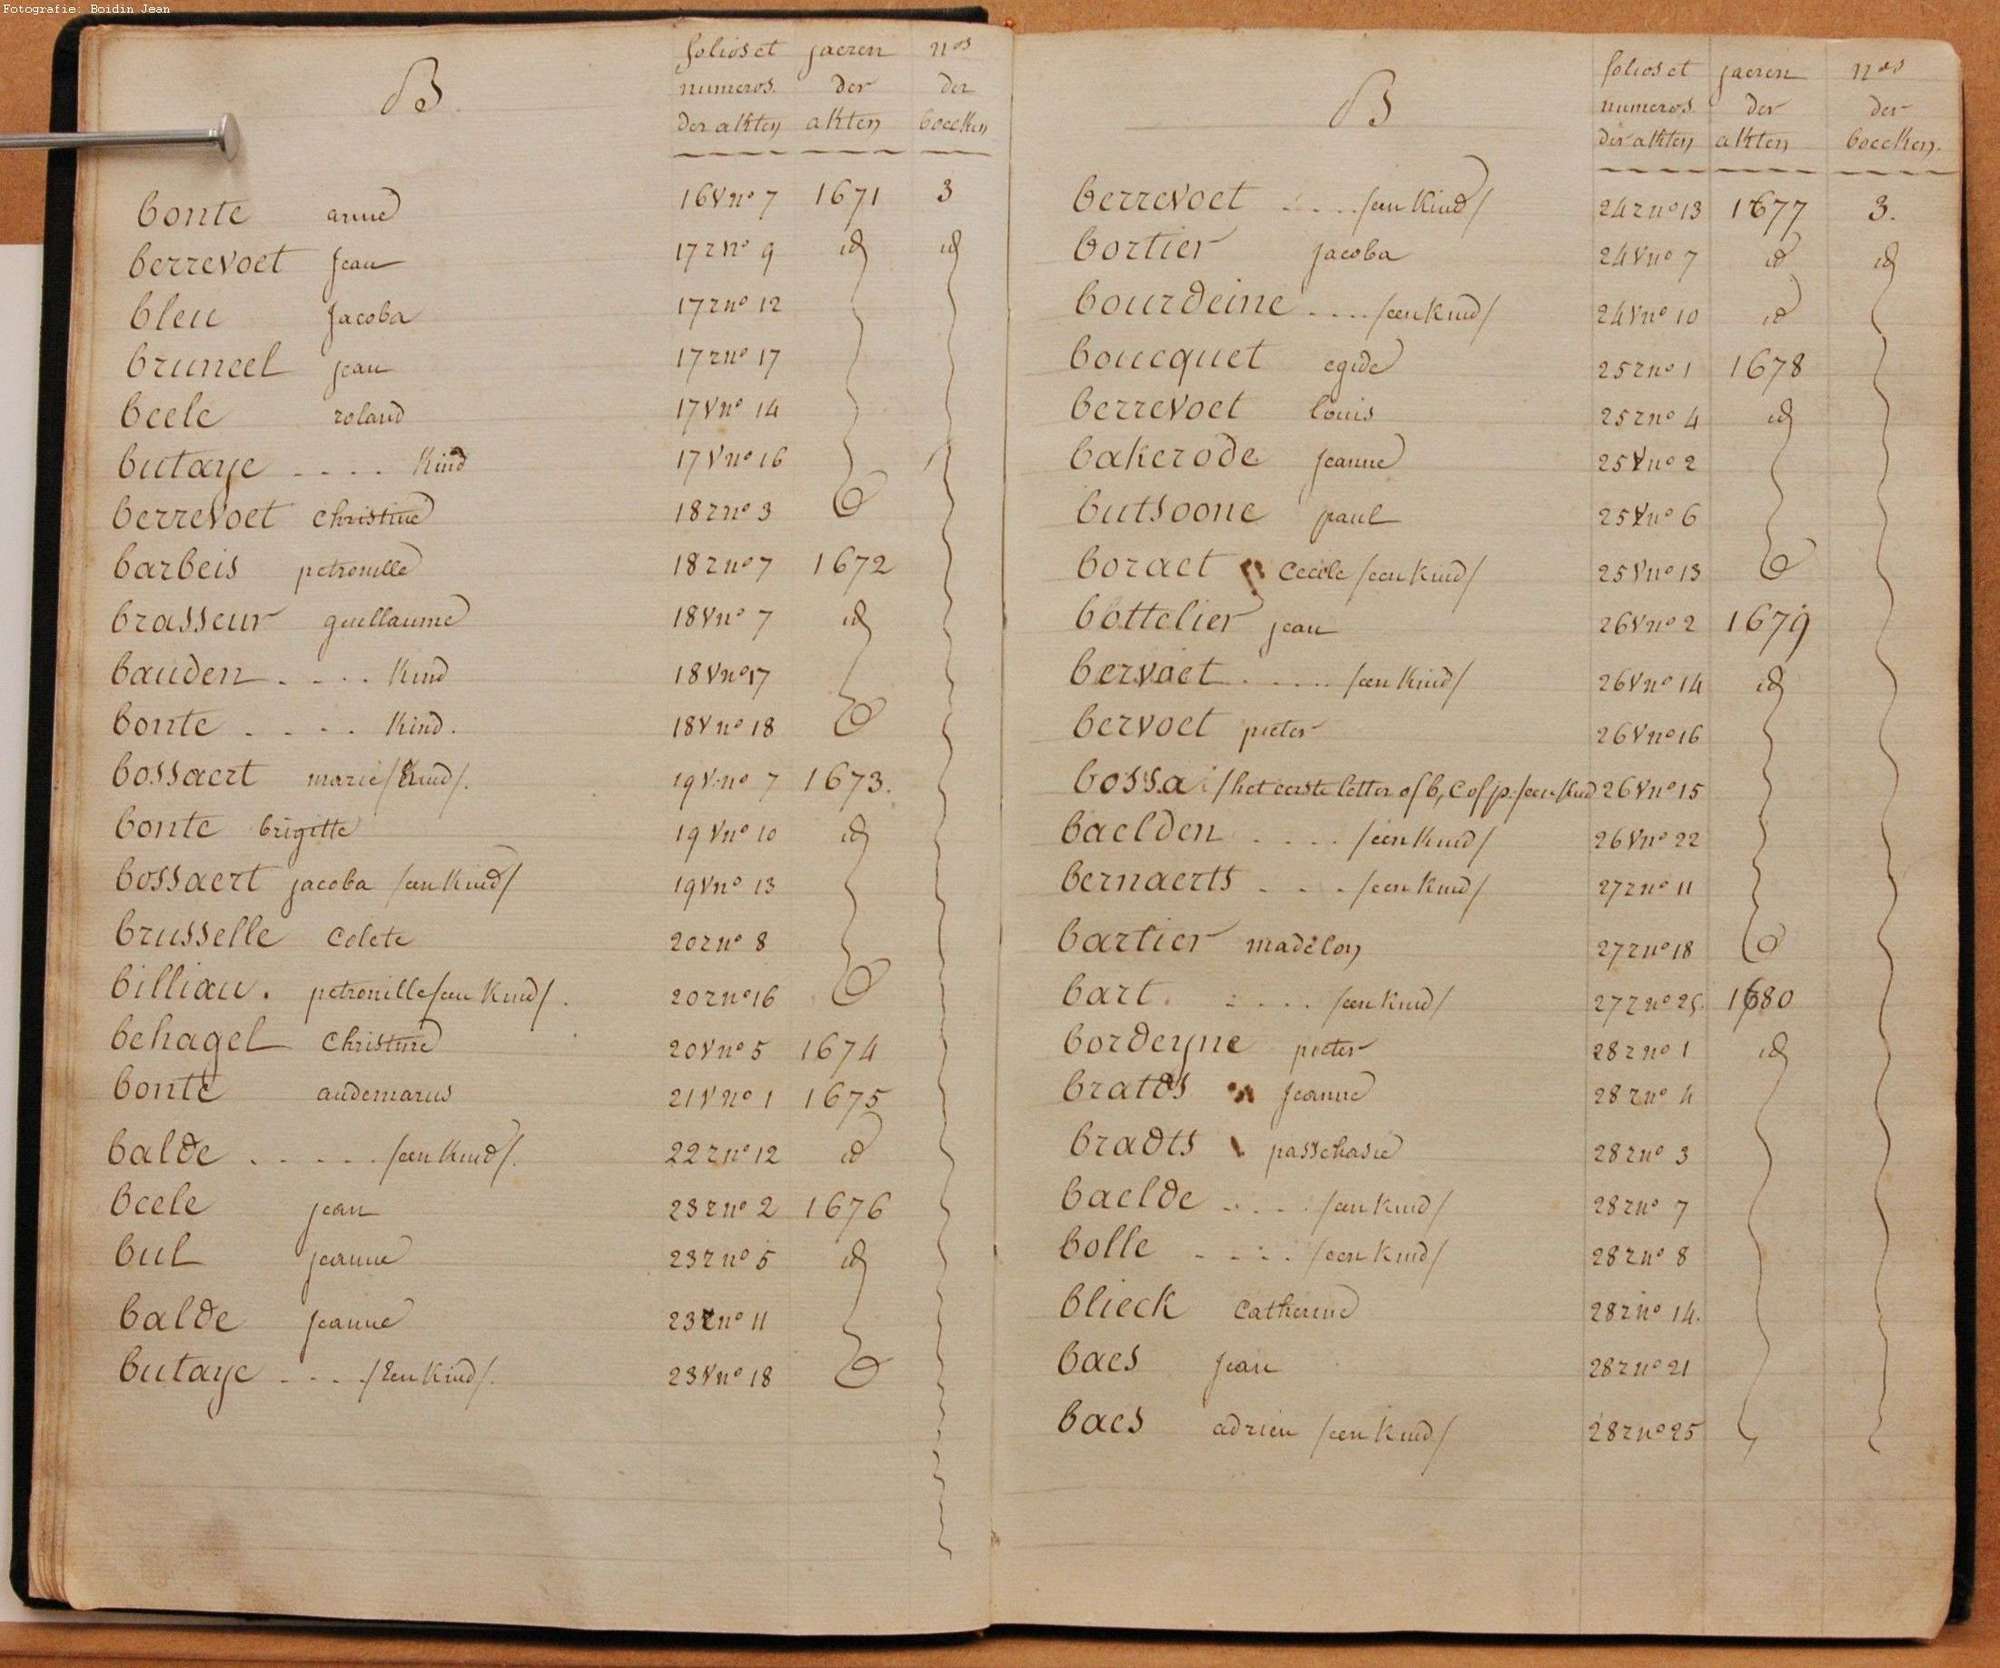 Fotografie: Boidin Jean
B.
folios et jaeren nos
numeros. der der
der akten akten boecken
bonte anne 16V no 7 1671 3
berrevoet jean 17 r no 9 id id
bleu jacoba 17 r no 12
bruneel jean 17 r no 17
beele roland 17 V no 14
butaye - - - - Kind 17 V no 16
berrevoet christine 18 r no 3
barbeis petronille 18 r no 7 1672
brasseur guillaume 18 V no 7 id
bauden - - - - Kind 18 V no 17
bonte - - - - Kind. 18 V no 18
bossaert marie /Kind/. 19 V no 7 1673.
bonte brigitte 19 V no 10 id
bossaert jacoba /een Kind/ 19 V no 13
brusselle colete 20 r no 8
billiau. petronille /een Kind/. 20 r no 16
behagel christine 20 V no 5 1674
bonte audemarus 21 V no 1 1675
balde - - - - - /een Kind/. 22 r no 12 id
beele jean 23 r no 2 1676
bul jeanne 23 r no 5 id
balde jeanne 23 r no 11
butaye - - - - /Een Kind/. 23 V no 18
B
folios et jaeren nos
numeros der der
der akten akten boecken.
berrevoet - - - - /een Kind/ 24 r no 13 1677 3.
bortier jacoba 24 V no 7 id id
bourdeine - - - - /een Kind/ 24 V no 10 id
boucquet egide 25 r no 1 1678
berrevoet louis 25 r no 4 id
bakerode jeanne 25 V no 2
butsoone paul 25 V no 6
boraet cecile /een Kind/ 25 V no 13
bottelier jean 26 V no 2 1679
bervaet - - - - - /een Kind/ 26 V no 14 id
bervoet pieter 26 V no 16
bossa /het eerste letter of b, c of p. /een Kind 26 V no 15
baelden - - - - /een Kind/ 26 V no 22
bernaerts - - - /een Kind/ 27 r no 11
bartier madelon 27 r no 18
bart - - - - /een Kind/ 27 r no 25. 1680
bordeyne pieter 28 r no 1 id
bratds jeanne 28 r no 4
bradts passchasie 28 r no 3
baelde - - - - /een Kind/ 28 r no 7
bolle - - - - /een Kind/ 28 r no 8
blieck catherine 28 r no 14.
baes jean 28 r no 21
baes adrien /een Kind/ 28 r no 25